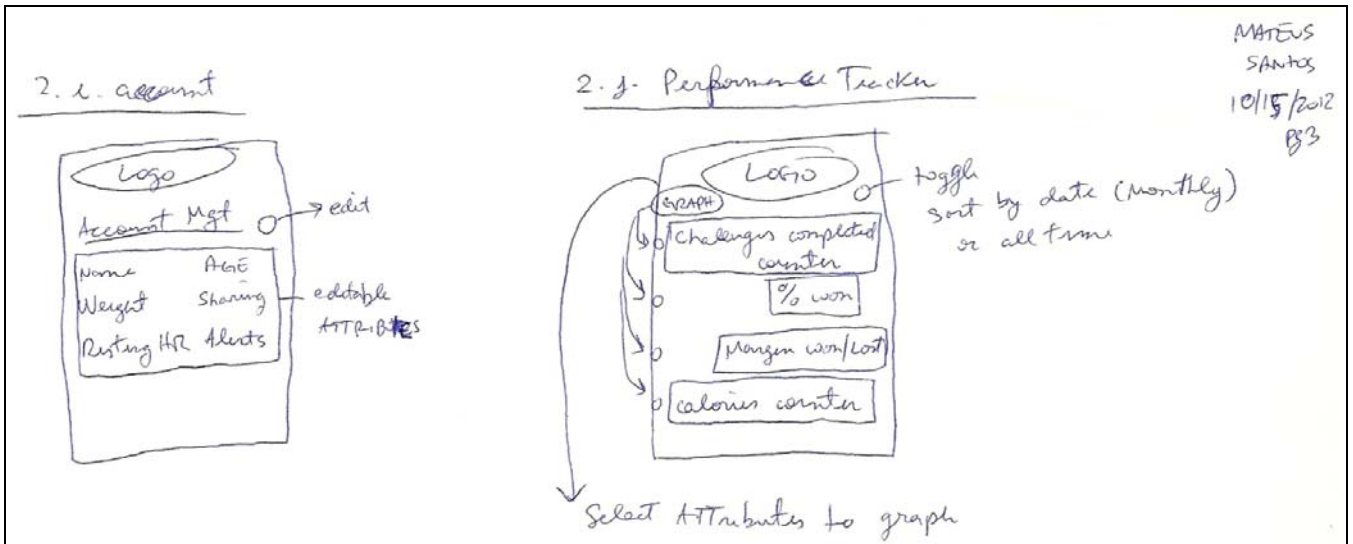 MATEUS
SANTOS
10/15/2012
pg 3
2. i. account
Logo
Account Mgt
edit
Name AGE
Weight Sharing
Resting HR Alerts
editable
ATTRIBUTES
2. j. Performance Tracker
LOGO
GRAPH
toggle
sort by date (monthly)
or all time
Challenges completed
counter
% won
Margin won/lost
calories counter
Select ATTributes to graph